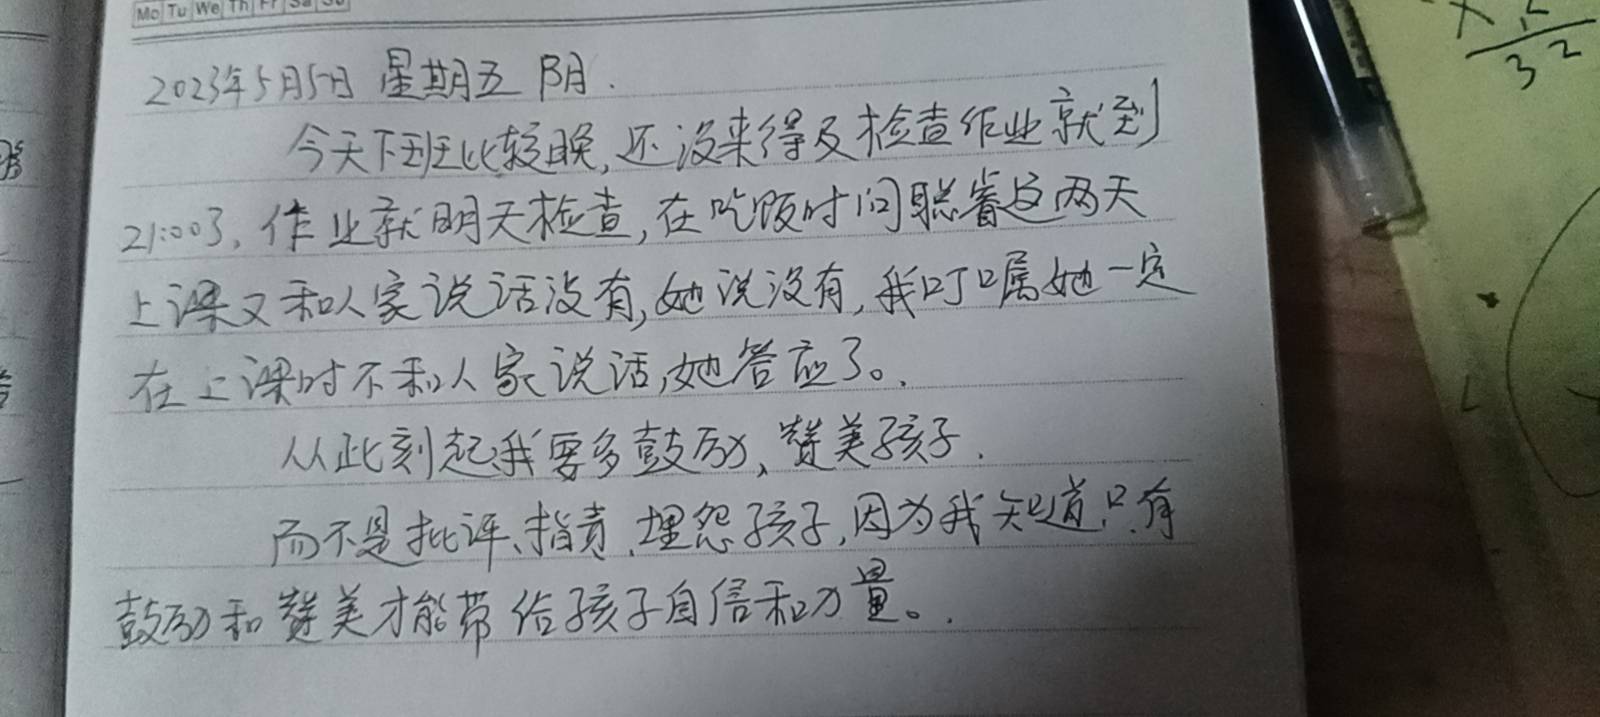 Mo Tu We Th Fr Sa Su
2023年5月5日 星期五 阴.
今天下班比较晚,还没来得及检查作业就到
21:00了,作业就明天检查,在吃饭时间聪睿这两天
上课又和人家说话没有,她说没有,我叮嘱她一定
在上课时不和人家说话,她答应了。
从此刻起,我要多鼓励、赞美孩子.
而不是批评、指责、埋怨孩子,因为我知道只有
鼓励和赞美才能带给孩子自信和力量。